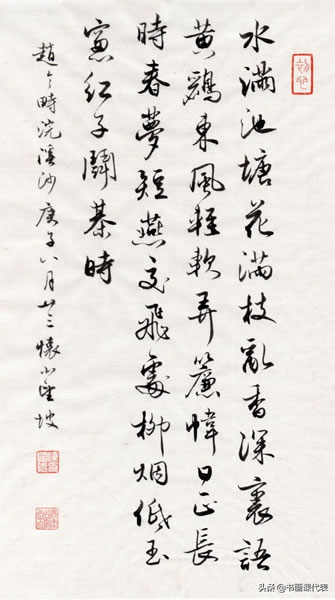 水滿池塘花滿枝亂香深裏語
黄鸝東風輕軟弄簾幃日正長
時春夢短燕交飛處柳烟低玉
窻红子鬭棊時
趙令時浣溪沙庚子八月廿三懷
头条 @书画课代表